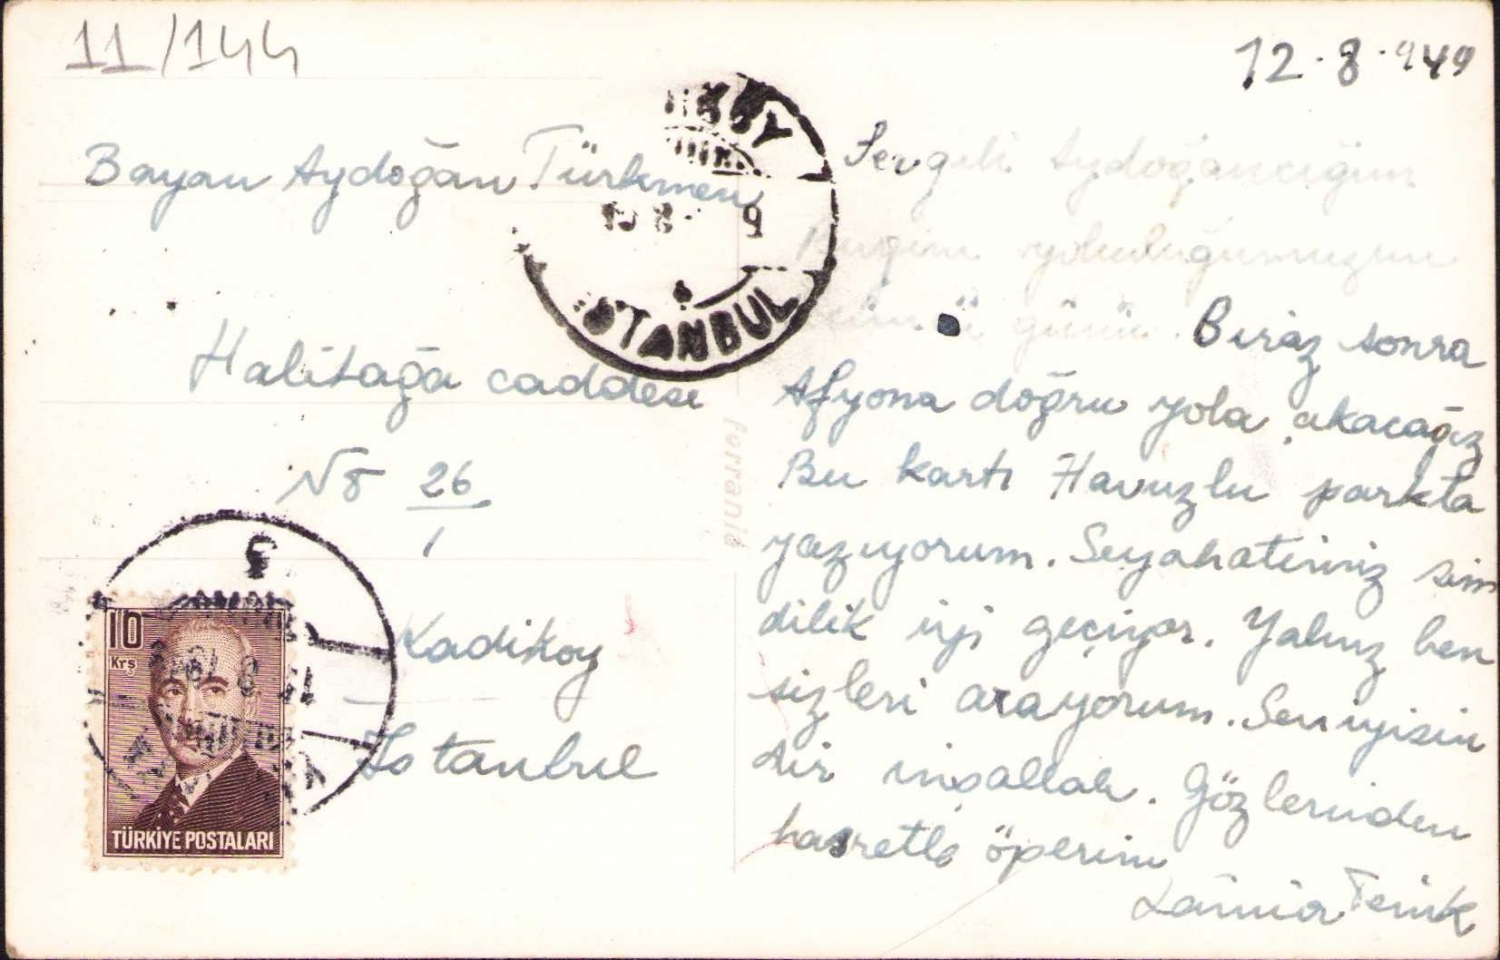 11/144
12.8.949
Bayan Aydoğan Türkmen
Halitağa caddesi
No 26
1
Kadikoy
İstanbul
İSTANBUL
9
10
Krş
TÜRKİYE POSTALARI
ferrania
Sevgili Aydoğancığım
Bugün yolculuğumuzun
günü. Biraz sonra
Afyona doğru yola çıkacağız
Bu kartı Havuzlu parkta
yazıyorum. Seyahatimiz şim
dilik iyi geçiyor. Yalnız ben
sizleri arayorum. Sen iyisin
dir inşallah. Gözlerinden
hasretle öperim
Lâmia